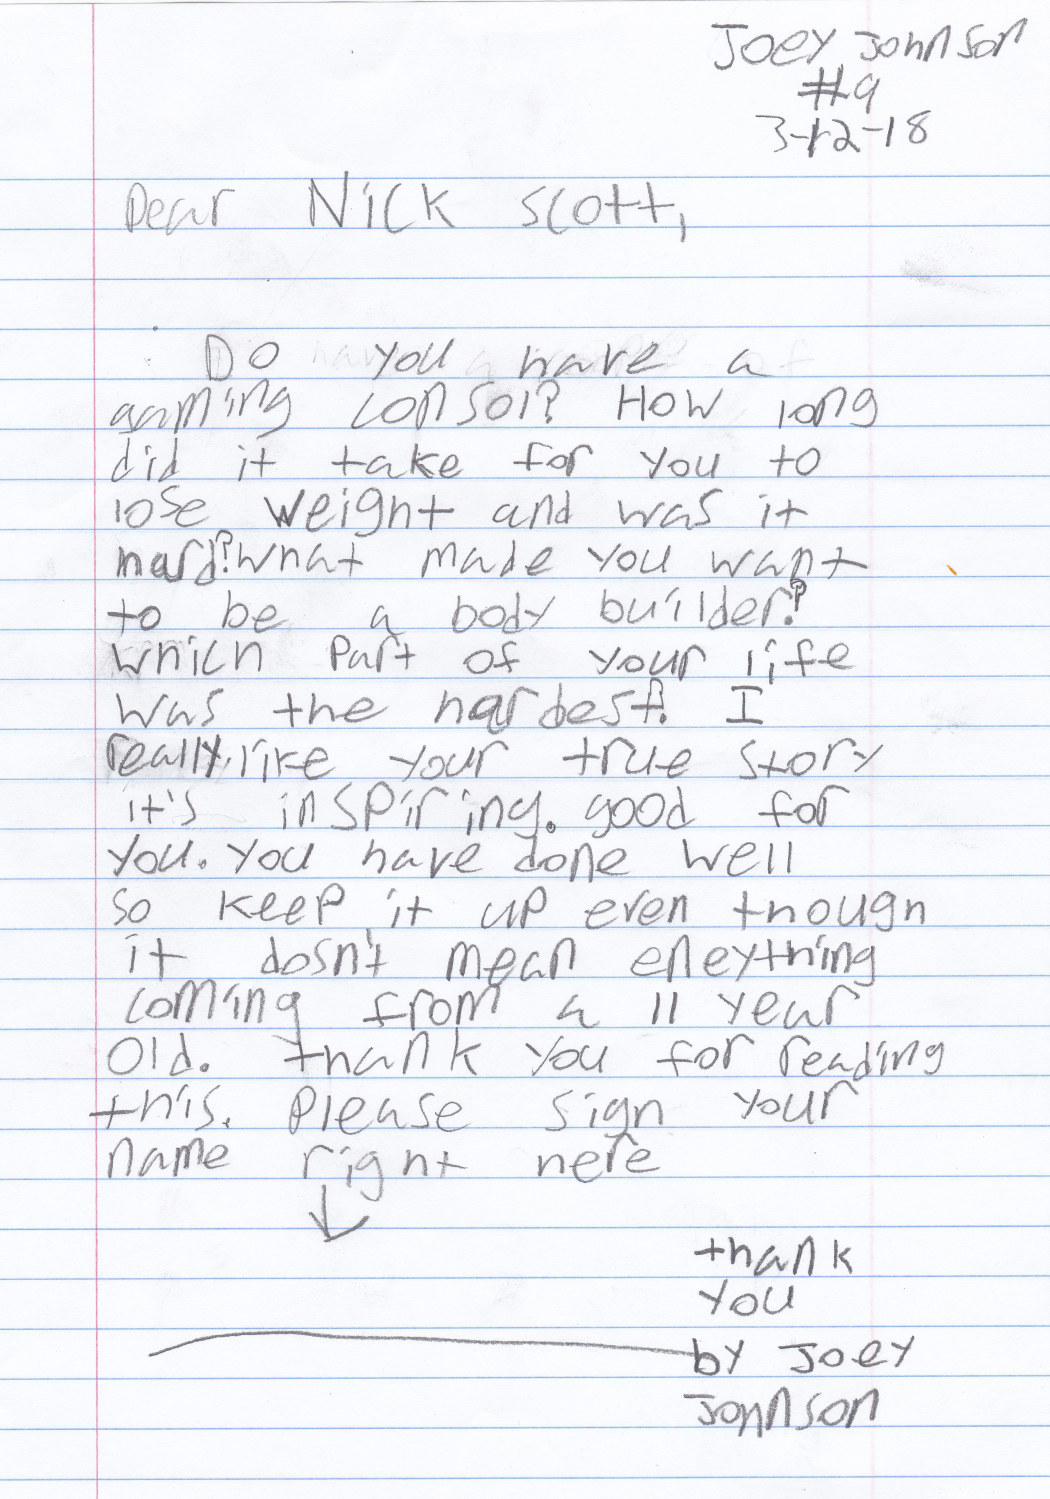 Joey Johnson
#9
3-12-18
Dear Nick Scott,
Do you have a
gaming consol? How long
did it take for you to
lose weight and was it
hard? what made you want
to be a body builder?
which part of your life
was the hardest? I
really like your true story
it's inspiring. good for
you. you have done well
so keep it up even though
it dosn't mean eneything
coming from a 11 year
old. thank you for reading
this. Please sign your
name right here
thank
you
by Joey
Johnson